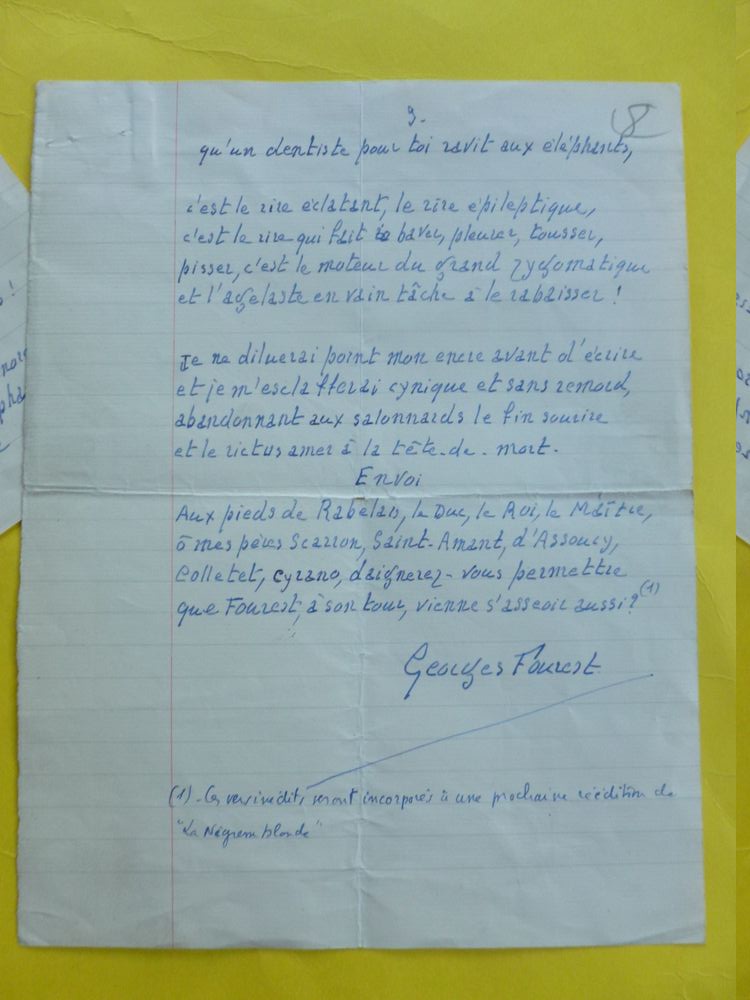 9.
8
qu'un dentiste pour toi ravit aux éléphants,
c'est le rire éclatant, le rire épileptique,
c'est le rire qui fait baver, pleurer, tousser,
pisser, c'est le moteur du grand zygomatique
et l'agélaste en vain tâche à le rabaisser !
Je ne diluerai point mon encre avant d'écrire
et je m'esclafferai cynique et sans remord,
abandonnant aux salonnards le fin sourire
et le rictus amer à la tête-de-mort.
Envoi
Aux pieds de Rabelais, le Duc, le Roi, le Maître,
ô mes pères Scarron, Saint-Amant, d'Assoucy,
Colletet, Cyrano, daignerez-vous permettre
que Fourest, à son tour, vienne s'asseoir aussi? (1)
Georges Fourest
(1) - Ces vers inédits seront incorporés à une prochaine réédition de
"La Négresse blonde"